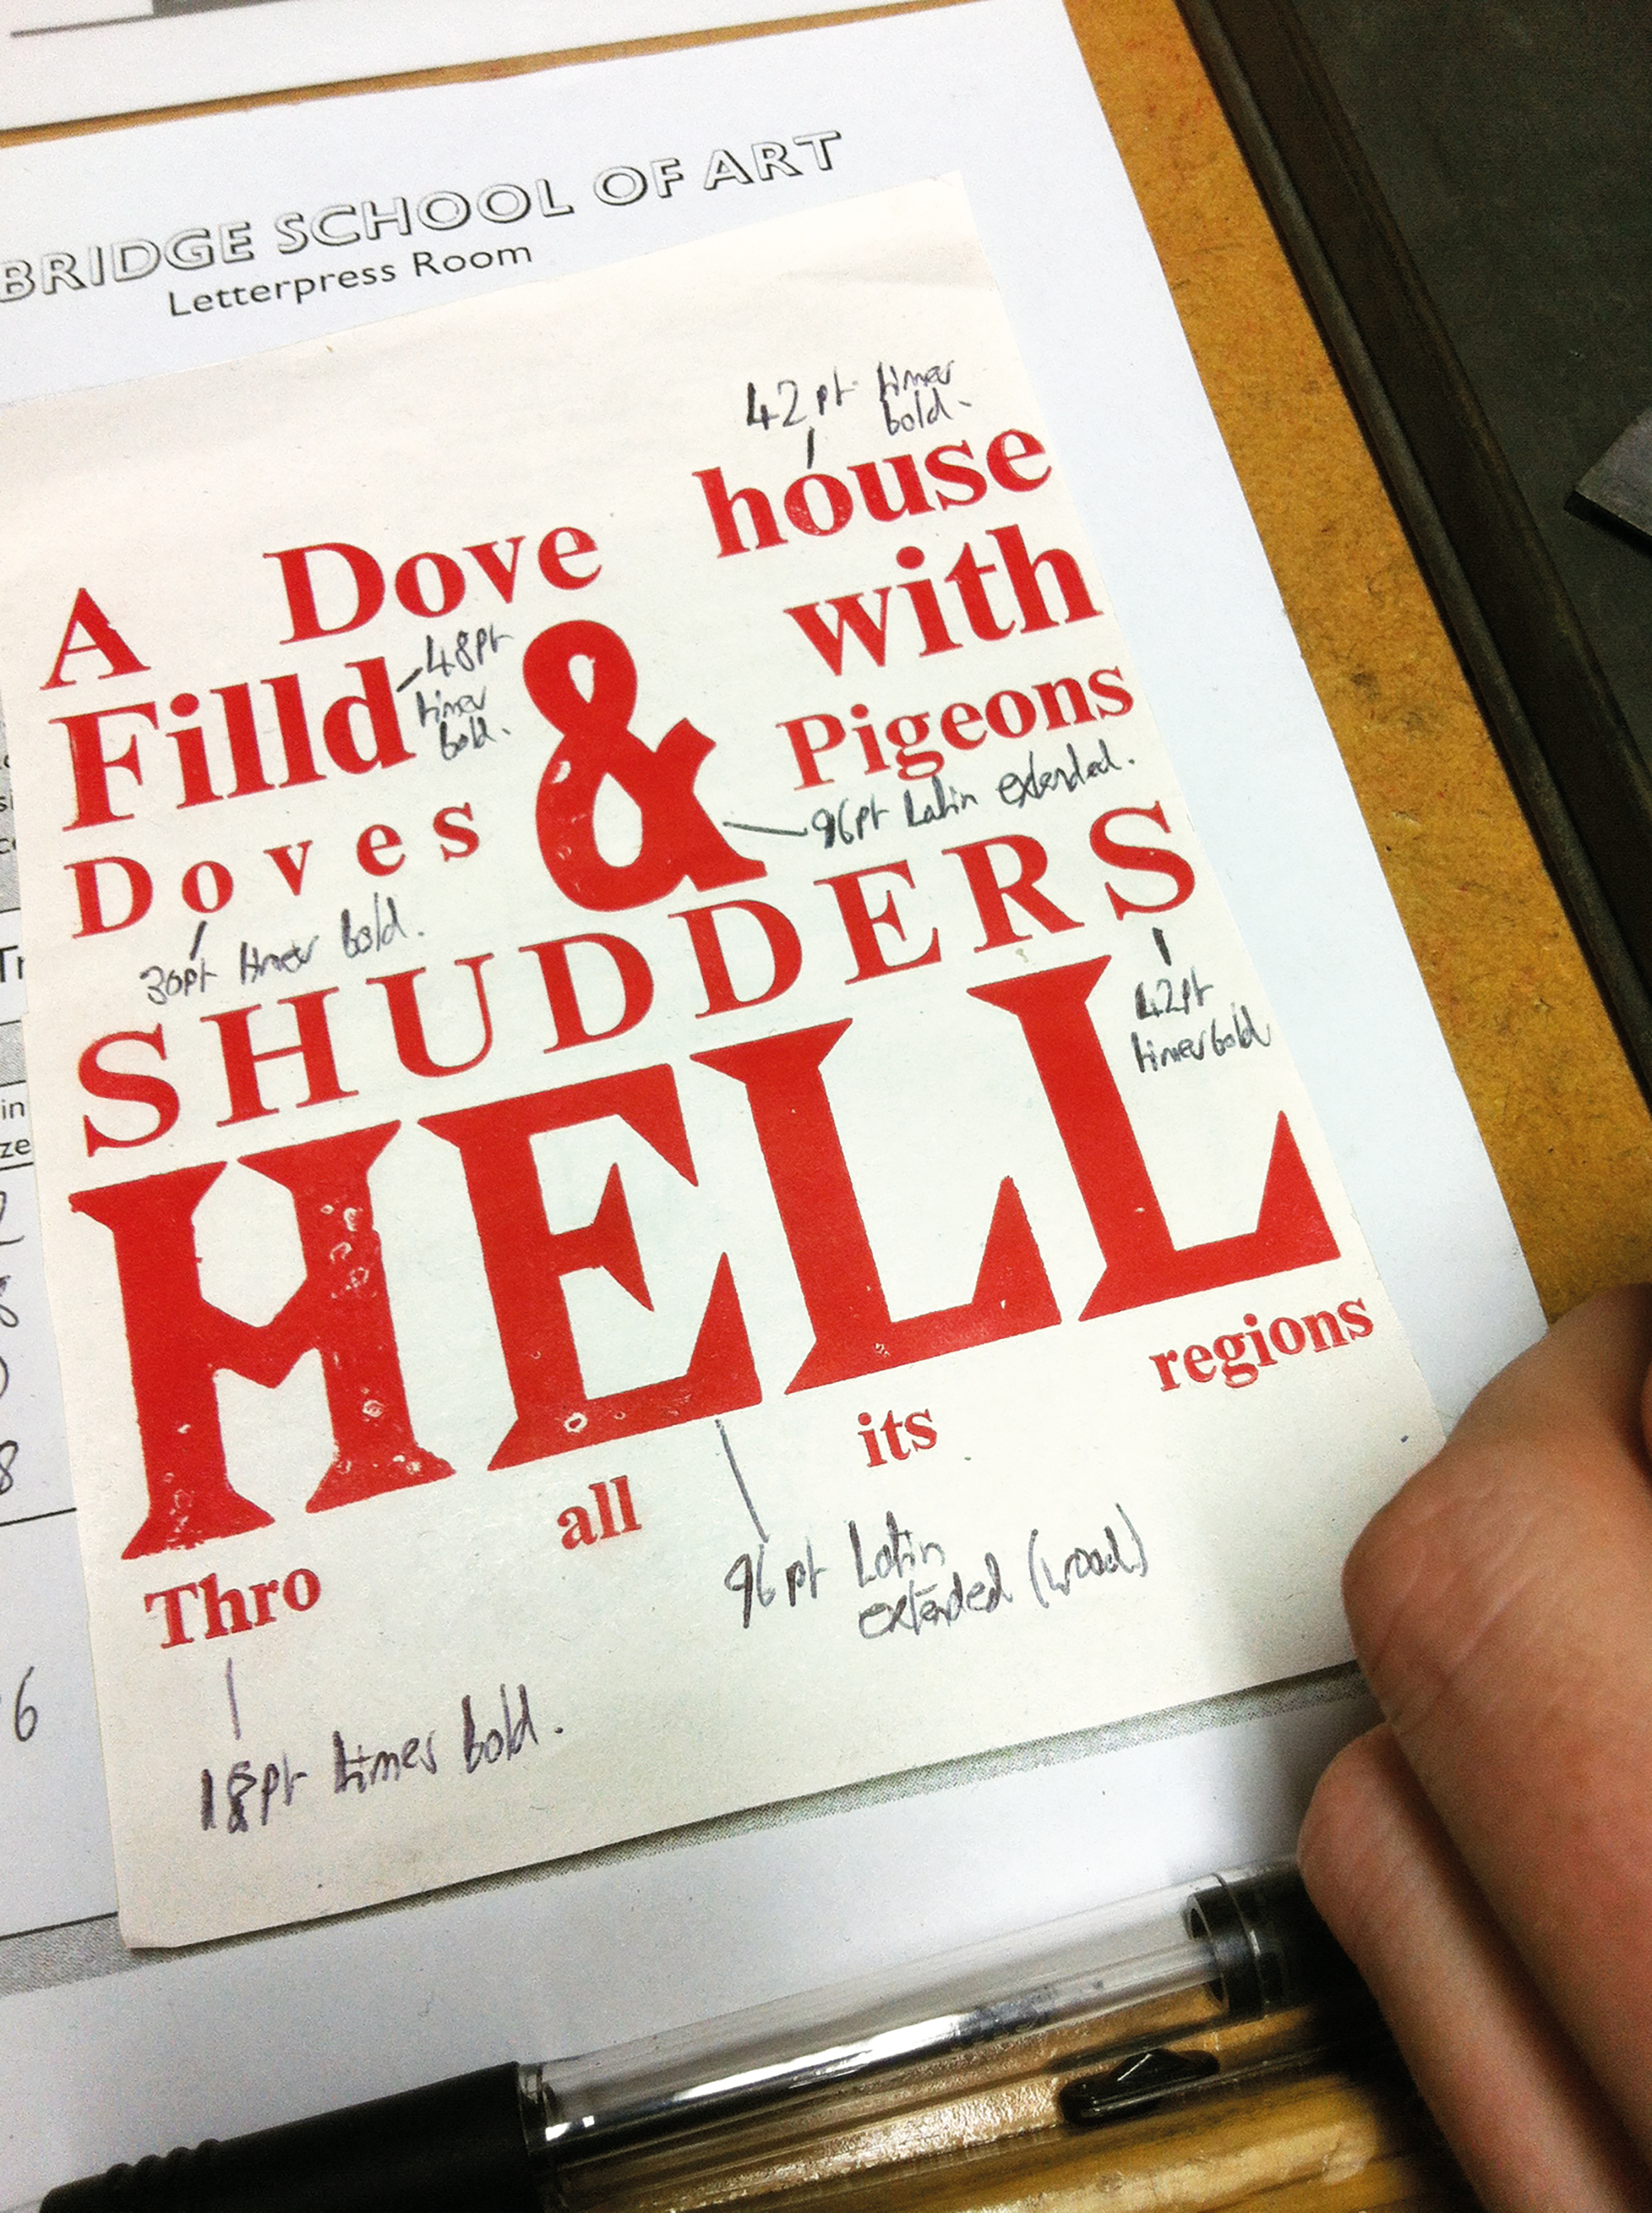 BRIDGE SCHOOL OF ART
Letterpress Room
42pt times
bold.
A Dove house
Filld & with
48pt
times
bold.
Doves Pigeons
96pt Latin extended.
30pt times bold.
SHUDDERS
42pt
times bold
HELL
Thro all its regions
96pt Latin
extended (wood)
18pt times bold.
Tr
in
ze
2
8
6